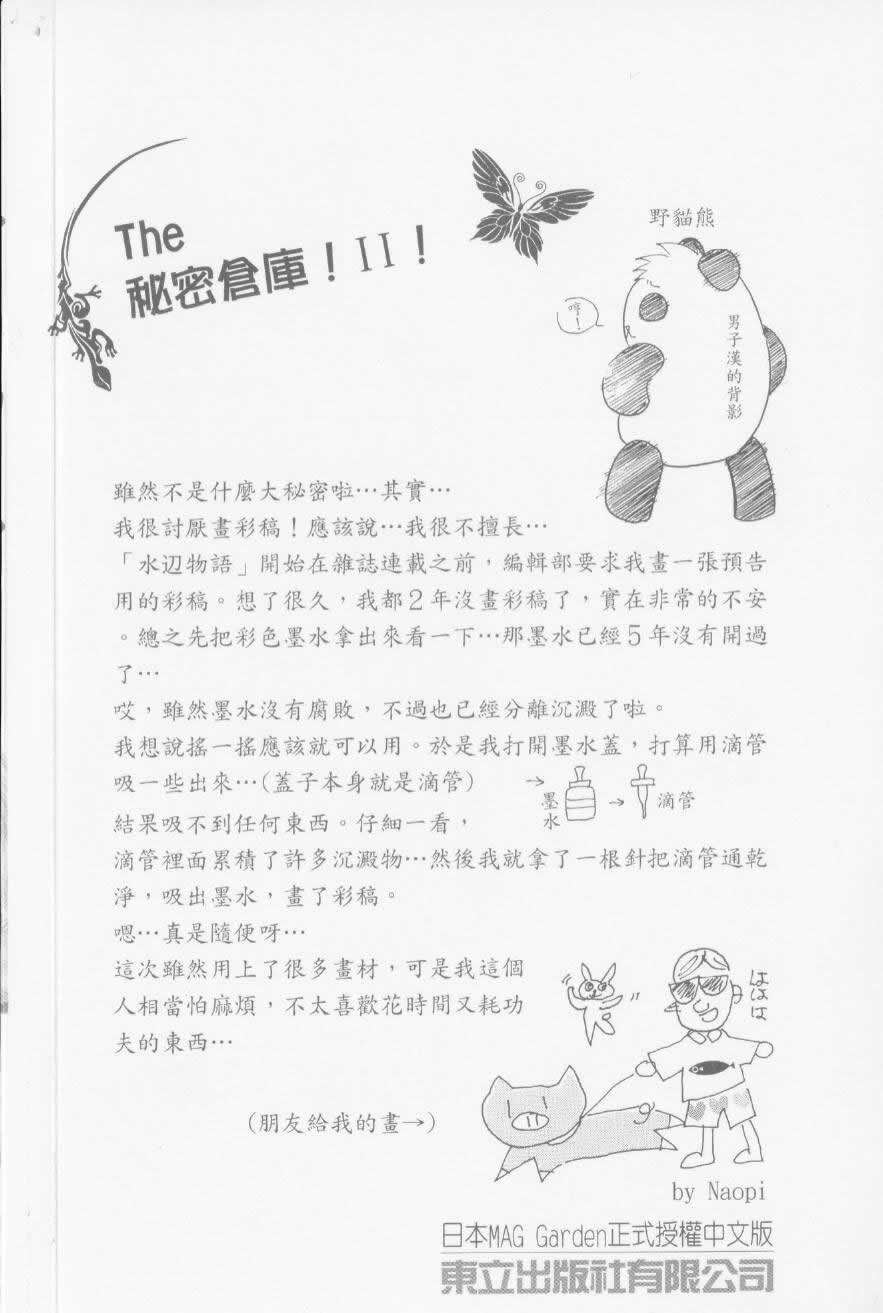 The
秘密倉庫！II！
野貓熊
哼！
男子漢的背影
雖然不是什麼大秘密啦…其實…
我很討厭畫彩稿！應該說…我很不擅長…
「水辺物語」開始在雜誌連載之前，編輯部要求我畫一張預告
用的彩稿。想了很久，我都２年沒畫彩稿了，實在非常的不安
。總之先把彩色墨水拿出來看一下…那墨水已經５年沒有開過
了…
哎，雖然墨水沒有腐敗，不過也已經分離沉澱了啦。
我想說搖一搖應該就可以用。於是我打開墨水蓋，打算用滴管
吸一些出來…(蓋子本身就是滴管)
→墨水→滴管
結果吸不到任何東西。仔細一看，
滴管裡面累積了許多沉澱物…然後我就拿了一根針把滴管通乾
淨，吸出墨水，畫了彩稿。
嗯…真是隨便呀…
這次雖然用上了很多畫材，可是我這個
人相當怕麻煩，不太喜歡花時間又耗功
夫的東西…
ははは
(朋友給我的畫→)
by Naopi
日本MAG Garden正式授權中文版
東立出版社有限公司